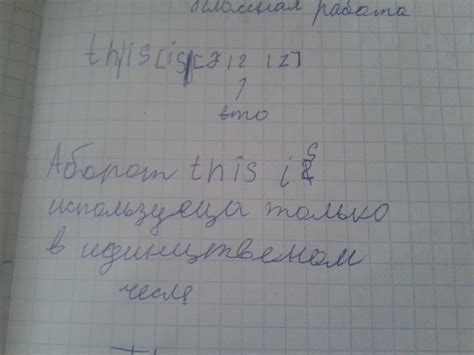 работа
this[is][зıз ız]
это
Аборот this is
используеца только
в идинственом
чесле